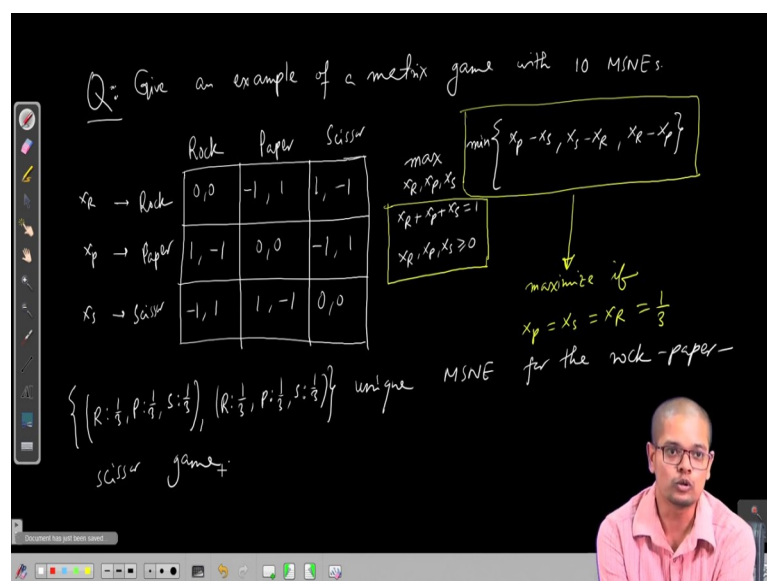 Q: Give an example of a matrix game with 10 MSNEs.
Rock Paper Scissor
x_R → Rock 0,0 -1, 1 1, -1
x_P → Paper 1, -1 0,0 -1, 1
x_S → Scissor -1, 1 1, -1 0,0
max
x_R, x_P, x_S
min { x_P - x_S, x_S - x_R, x_R - x_P }
x_R + x_P + x_S = 1
x_R, x_P, x_S ≥ 0
maximize if
x_P = x_S = x_R = 1/3
{ (R: 1/3, P: 1/3, S: 1/3), (R: 1/3, P: 1/3, S: 1/3) } unique MSNE for the rock-paper-
scissor game.
Document has just been saved.